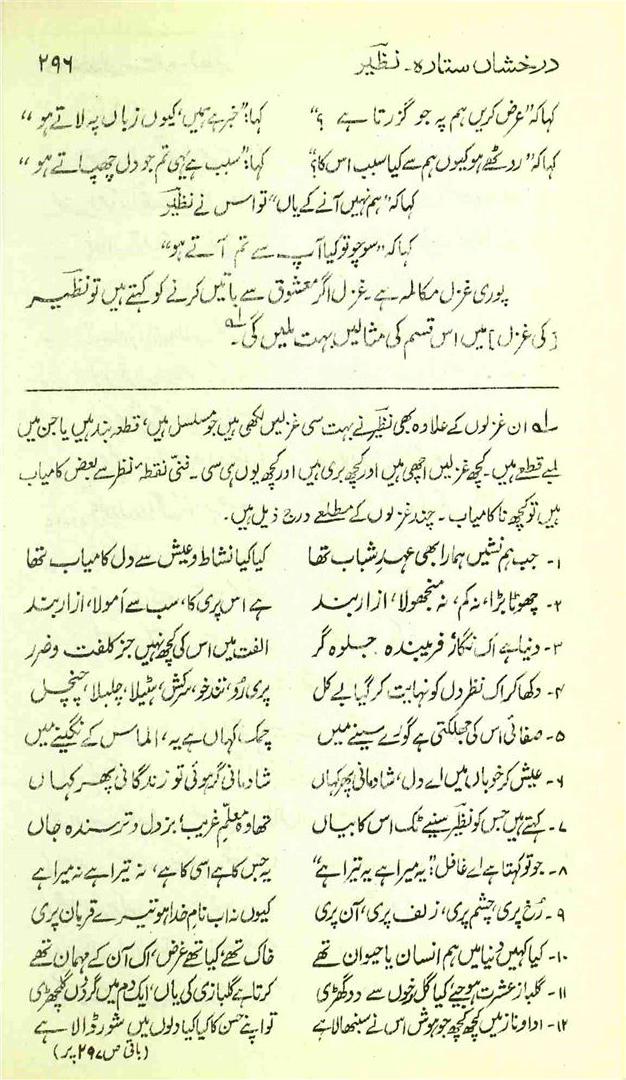 درخشاں ستارہ۔ نظیر ۲۹۶
کہا کہ "عرض کریں ہم پہ جو گزرتا ہے ؟" کہا: "خبر ہے ہمیں، کیوں زباں پہ لاتے ہو"
کہا کہ "روٹھے ہو کیوں ہم سے کیا سبب اس کا؟" کہا: "سبب ہے یہی تم جو دل چھپاتے ہو"
کہا کہ "ہم نہیں آنے کے یاں" تو اس نے نظیر
کہا کہ "سوچو تو کیا آپ سے تم آتے ہو"
پوری غزل مکالمہ ہے۔ غزل اگر معشوق سے باتیں کرنے کو کہتے ہیں تو نظیر
[کی غزل] میں اس قسم کی مثالیں بہت ملیں گی۔ ۱ے
۱ے ان غزلوں کے علاوہ بھی نظیر نے بہت سی غزلیں لکھی ہیں جو مسلسل ہیں، قطعہ بند ہیں یا جن میں
لمبے قطعے ہیں۔ کچھ غزلیں اچھی ہیں اور کچھ بری ہیں اور کچھ یوں ہی سی۔ فنّی نقطۂ نظر سے بعض کامیاب
ہیں تو کچھ ناکامیاب۔ چند غزلوں کے مطلعے درج ذیل ہیں۔
۱۔ جب ہم نشیں ہمارا بھی عہدِ شباب تھا کیا کیا نشاط و عیش سے دل کامیاب تھا
۲۔ چھوٹا بڑا، نہ کم، نہ منجھولا، ازار بند ہے اس پری کا، سب سے اَمولا، ازار بند
۳۔ دنیا ہے اک نگارِ فریبندہ جلوہ گر الفت میں اس کی کچھ نہیں جز کلفت و ضرر
۴۔ دکھا کر اک نظر دل کو نہایت کر گیا بے کل پری رُو، تند خو، سرکش، ہٹیلا، چلبلا، چنچل
۵۔ صفائی اس کی جھلکتی ہے گورے سینے میں چمک، کہاں ہے یہ، الماس کے نگینے میں
۶۔ عیش کر خوباں میں اے دل، شادمانی پھر کہاں شادمانی گر ہوئی تو زندگانی پھر کہاں
۷۔ کہتے ہیں جس کو نظیر سنیے ٹک اس کا بیاں تھا وہ معلّم غریب، بزدل و ترسندہ جاں
۸۔ جو تو کہتا ہے اے غافل: "یہ میرا ہے یہ تیرا ہے" یہ جس کا ہے اسی کا ہے، نہ تیرا ہے نہ میرا ہے
۹۔ رُخ پری، چشم پری، زلف پری، آن پری کیوں نہ اب نامِ خدا ہو تیرے قربان پری
۱۰۔ کیا کہیں دنیا میں ہم انسان یا حیوان تھے خاک تھے، کیا تھے غرض، اک آن کے مہمان تھے
۱۱۔ گلبازِ عشرت ہوجیے، کیا گل رخوں سے دو گھڑی کرتا ہے گلبازی کی یاں، ایک دم میں گردُوں گلجھڑی
۱۲۔ ادا و ناز میں کچھ کچھ جو ہوش اس نے سنبھالا ہے تو اپنے حسن کا کیا کیا دلوں میں شور ڈالا ہے
(باقی ص ۲۹۷ پر)